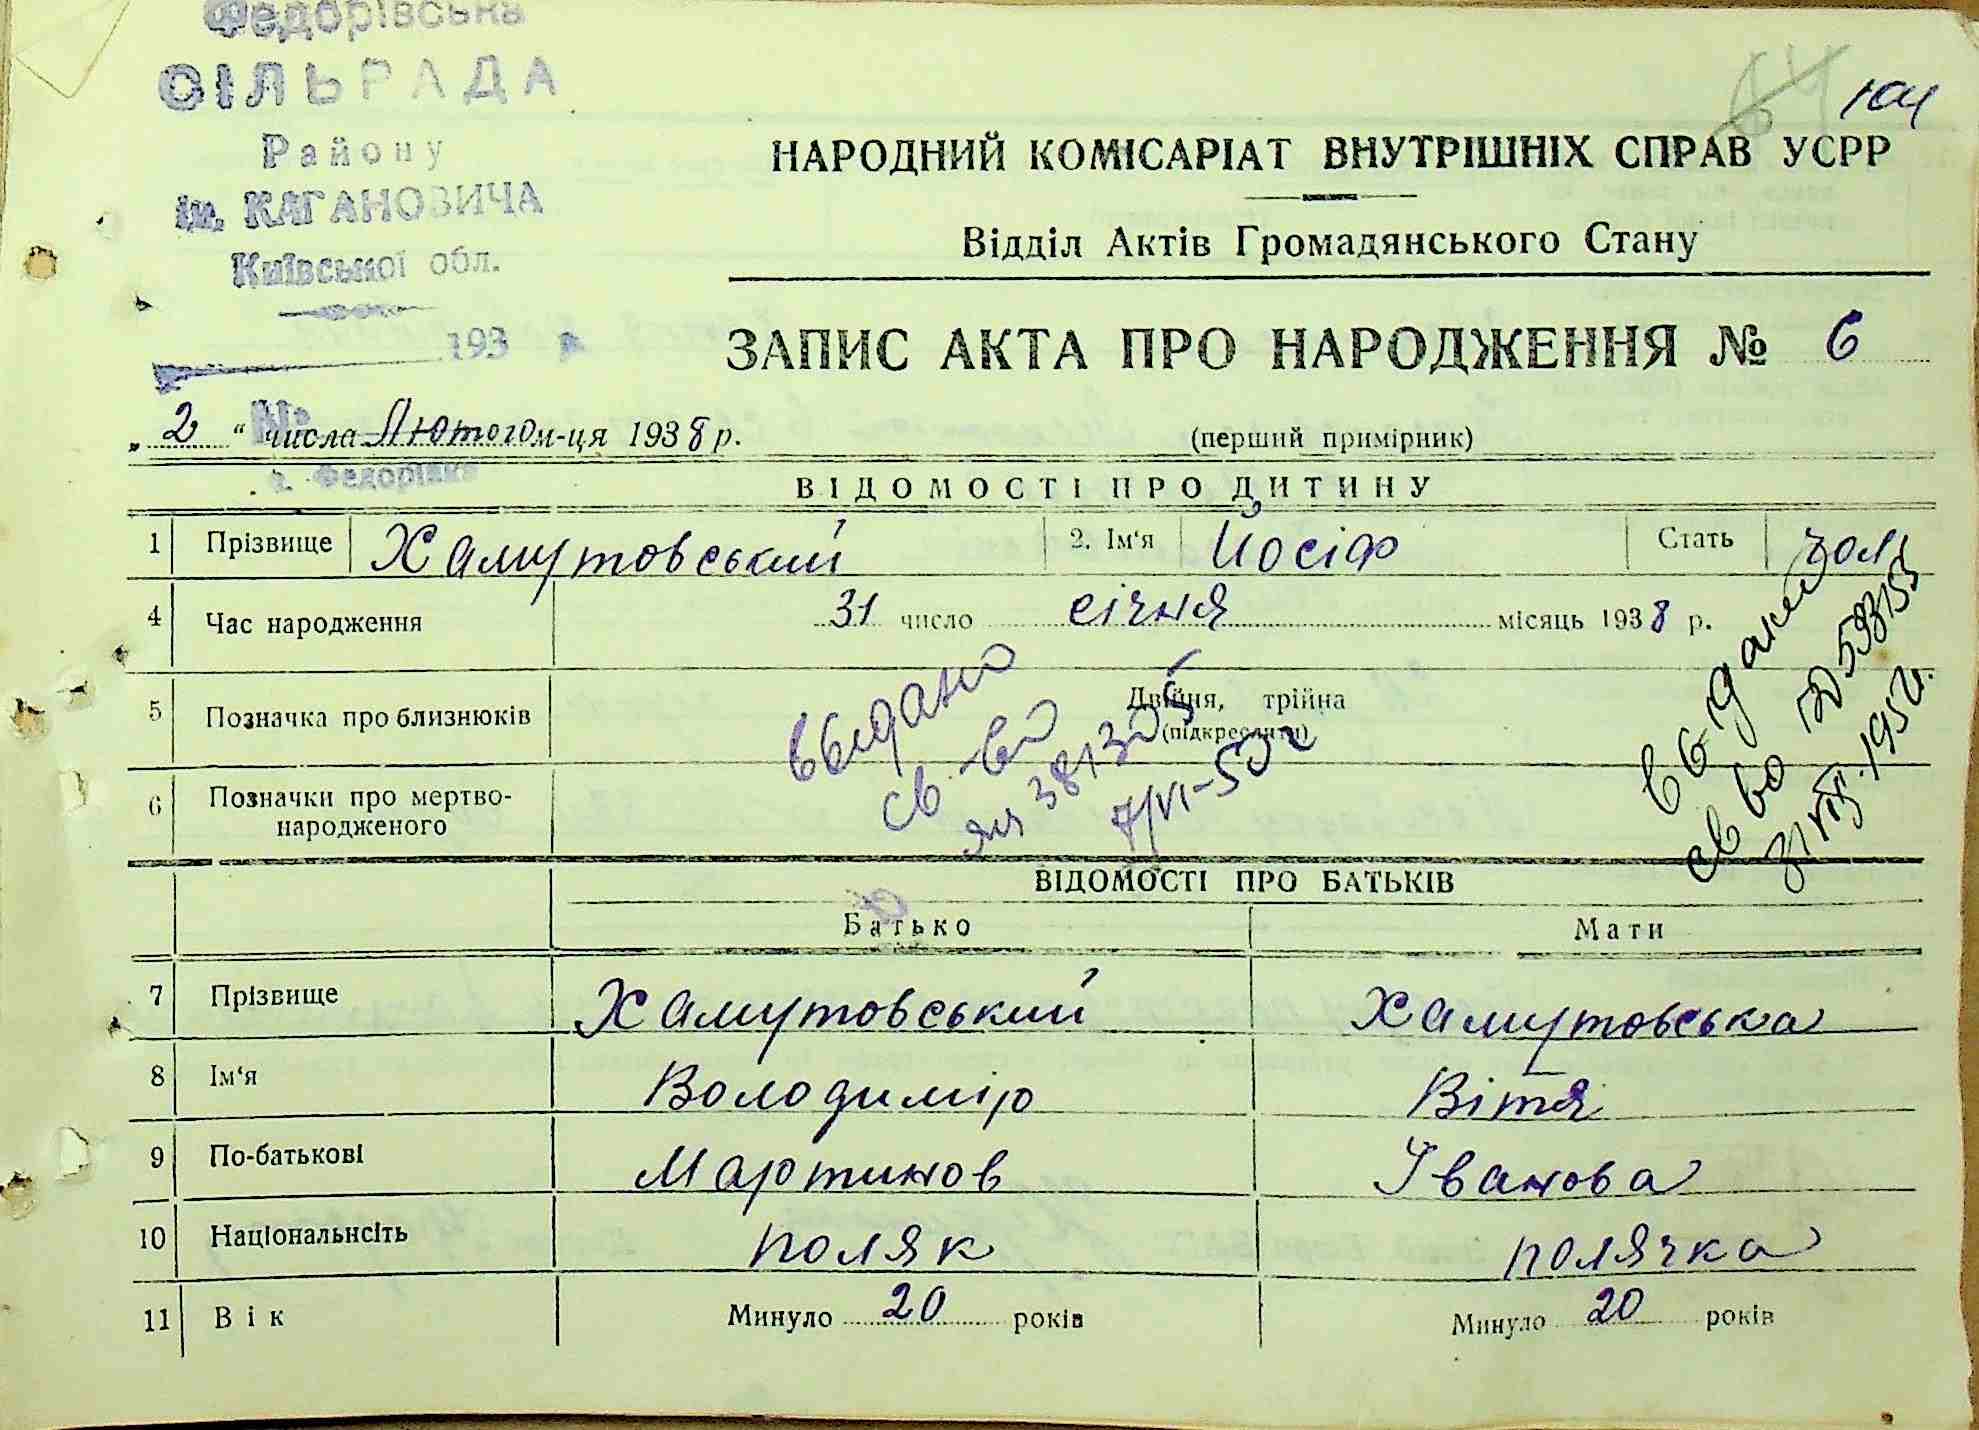 Федорівська
СІЛЬРАДА
Району
ім. КАГАНОВИЧА
Київської обл.
193 р.
№
с. Федорівка
64
104
НАРОДНИЙ КОМІСАРІАТ ВНУТРІШНІХ СПРАВ УСРР
Відділ Актів Громадянського Стану
ЗАПИС АКТА ПРО НАРОДЖЕННЯ № 6
„2“ числа Лютого м-ця 1938 р.
(перший примірник)
ВІДОМОСТІ ПРО ДИТИНУ
1 Прізвище Хамутовський 2. Ім'я Йосіф Стать чол
4 Час народження 31 число січня місяць 1938 р.
5 Позначка про близнюків Двійня, трійна
(підкреслити)
6 Позначки про мертво-
народженого
выдано
св-во
7/VI-50 г
выдано
св во
593153
31 VIII. 195 г.
ВІДОМОСТІ ПРО БАТЬКІВ
Батько Мати
7 Прізвище Хамутовський Хамутовська
8 Ім'я Володимір Вітя
9 По-батькові Мартинов Іванова
10 Національнсіть поляк полячка
11 Вік Минуло 20 років Минуло 20 років